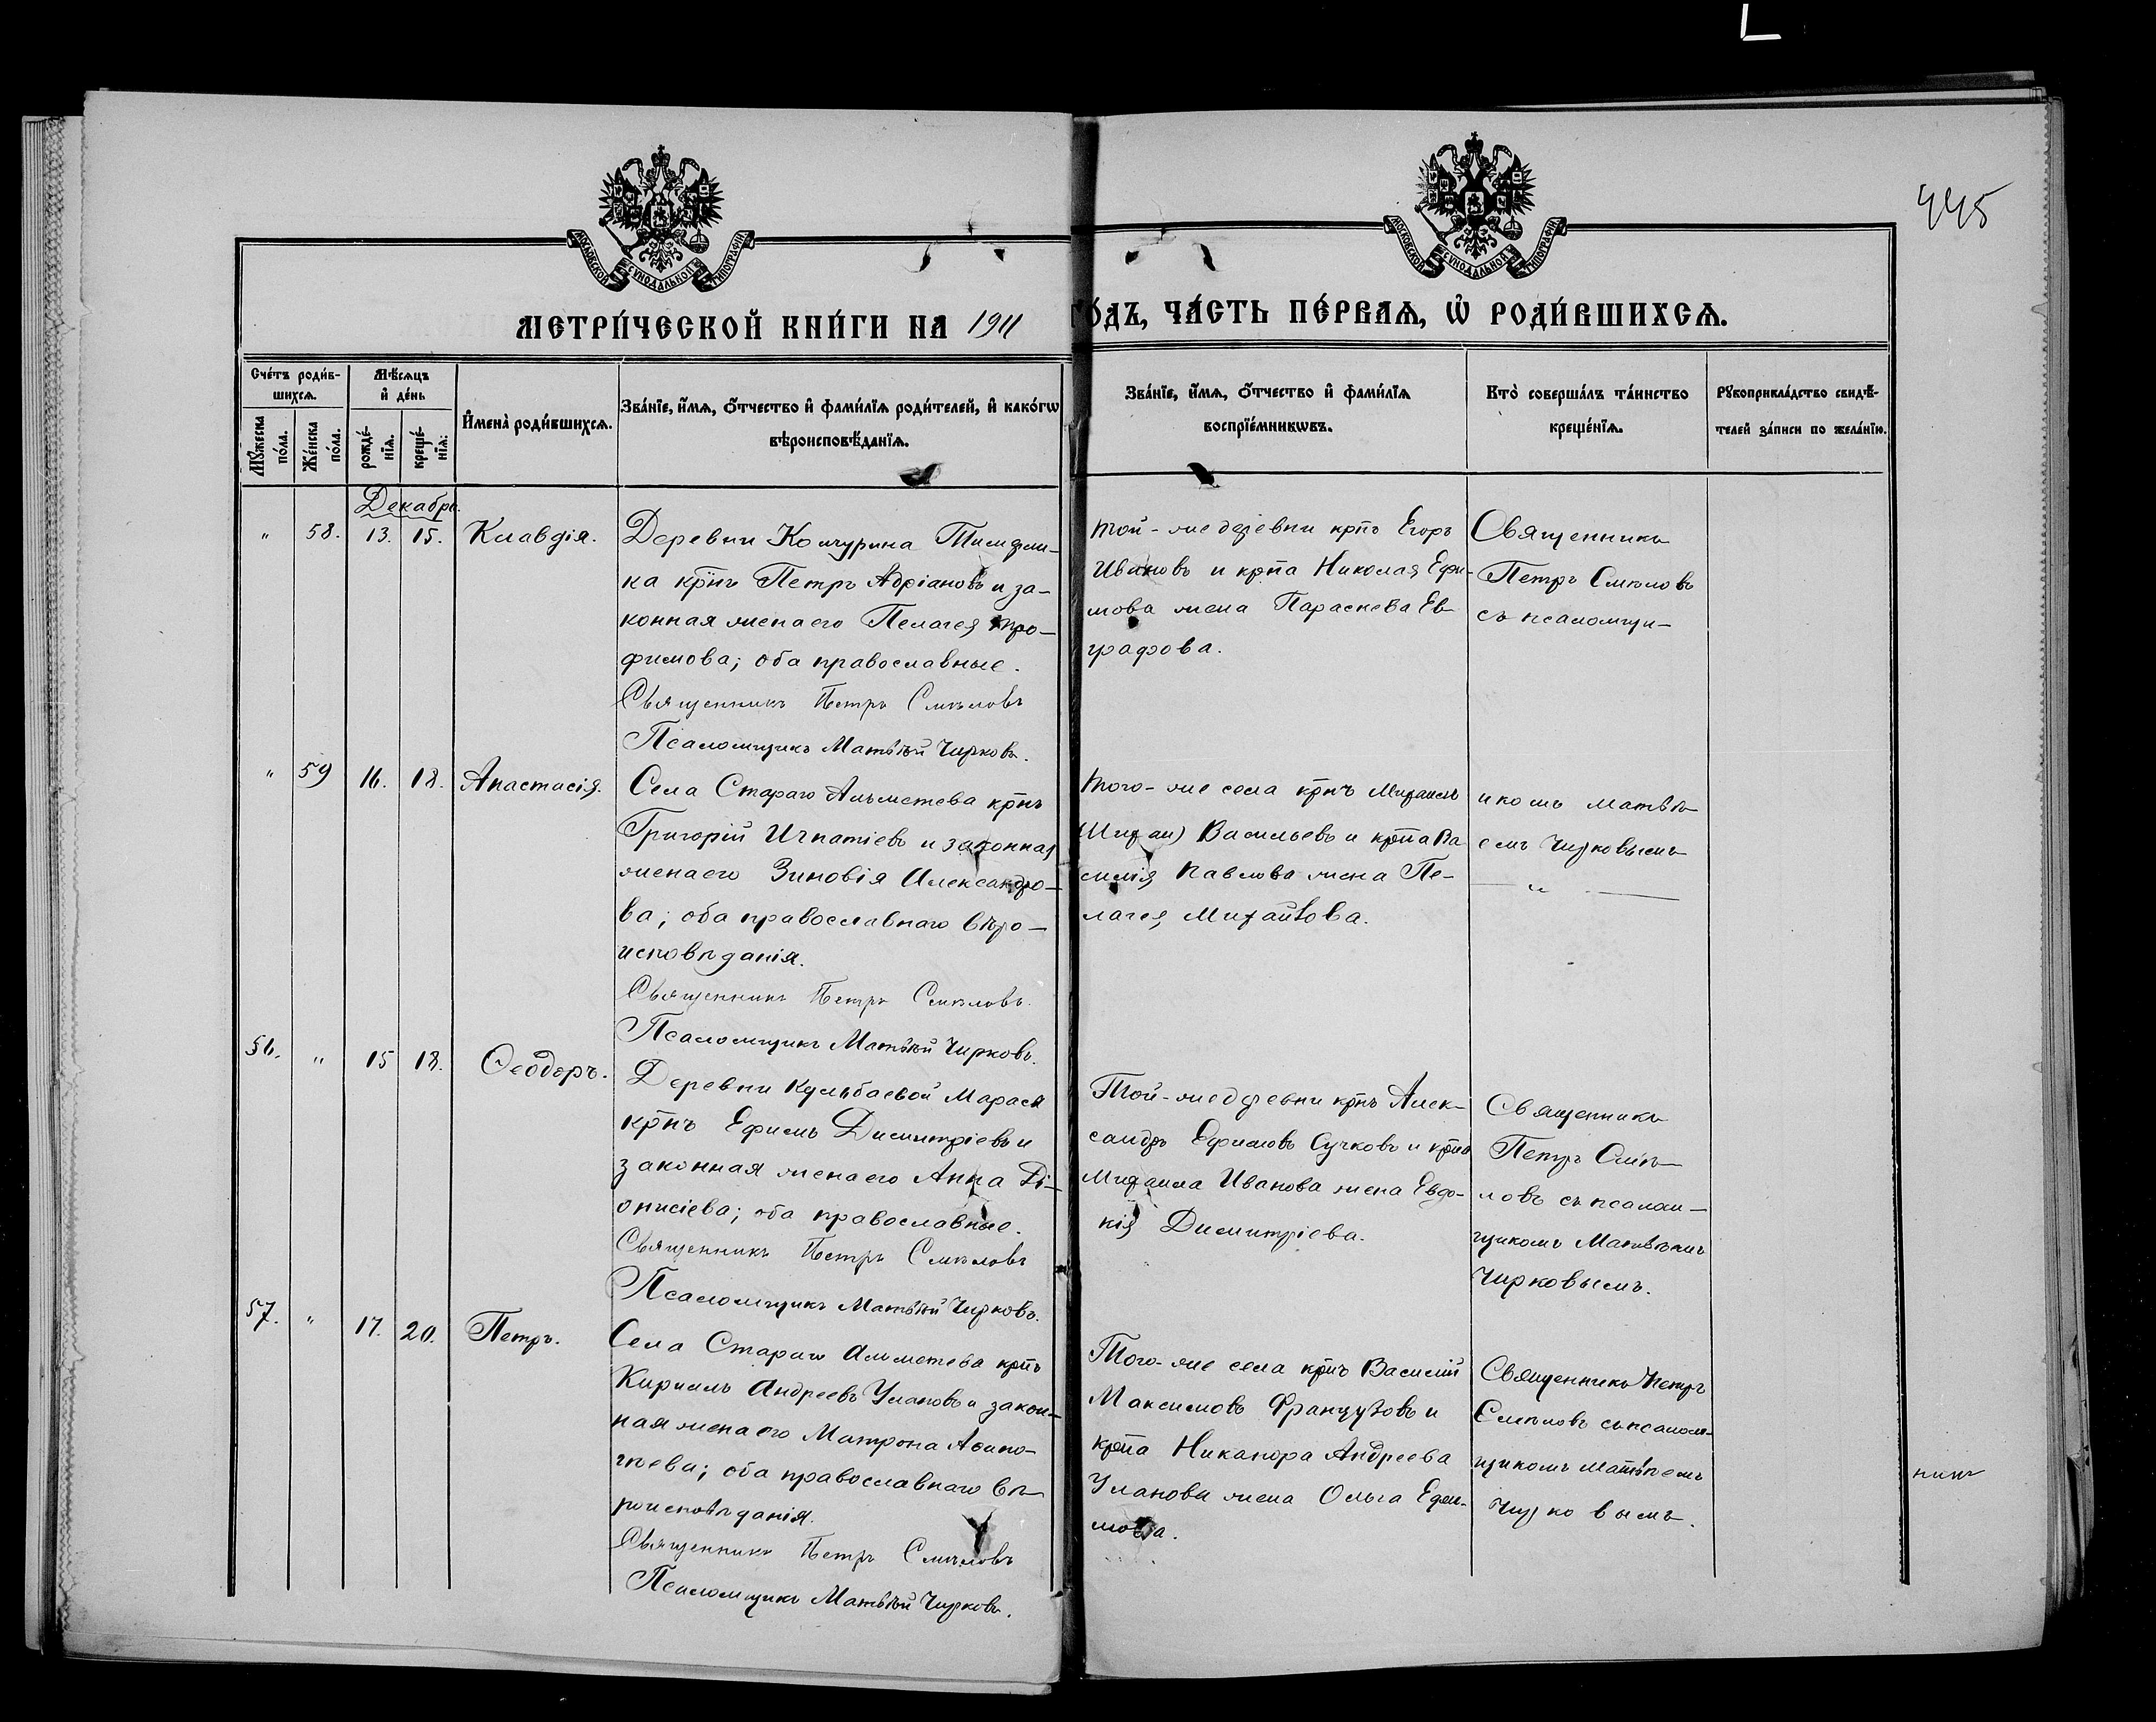 445
МОСКОВСКОЙ СѴНОДАЛЬНОЙ ТИПОГРАФІИ
МОСКОВСКОЙ СѴНОДАЛЬНОЙ ТИПОГРАФІИ
МЕТРИ́ЧЕСКОЙ КНИ́ГИ НА 1911 ГО́ДЪ, ЧА́СТЬ ПЕ́РВАѦ, Ѽ РОДИ́ВШИХСѦ.
Сче́тъ роди́в-
шихсѧ.
Мꙋ́жеска по́ла.
Же́нска по́ла.
Мѣ́сѧцъ
и҆ де́нь
рожде́-
нїѧ.
креще́-
нїѧ:
И҆мена̀ роди́вшихсѧ.
Зва́нїе, и҆́мѧ, ѻ҆́тчество и҆ фами́лїѧ роди́телей, и҆ како́гѡ
вѣроисповѣ́данїѧ.
Зва́нїе, и҆́мѧ, ѻ҆́тчество и҆ фами́лїѧ
воспрїе́мникѡвъ.
Кто̀ соверша́лъ та́инство
креще́нїѧ.
Рꙋкоприкла́дство свидѣ́-
телей за́писи по жела́нїю.
Декабрь.
" 58. 13. 15. Клавдія.
Деревни Кичурина
ка крнъ Петръ Адріановъ и за-
конная жена его Пелагея Тро-
фимова; оба православные.
Священникъ Петръ Смѣловъ
Псаломщикъ Матвѣй Чирковъ.
той-же деревни крнъ Егоръ
Ивановъ и крна Николая Ефи-
мова жена Параскева Ев-
графова.
Священникъ
Петръ Смѣловъ
съ псаломщи-
" 59 16. 18. Анастасія.
Села Стараго Альметева крнъ
Григорій Игнатіевъ и законная
жена его Зиновія Александро-
ва; оба православнаго вѣро-
исповѣданія.
Священникъ Петръ Смѣловъ.
Псаломщикъ Матвѣй Чирковъ.
того-же села крнъ Михаилъ
Васильевъ и крна Ва
силія Павлова жена Пе-
лагея Михайлова.
икомъ Матвѣ-
емъ Чирковымъ
— " —
56. " 15 18. Ѳеодоръ.
Деревни Кульбаевой Мараси
крнъ Ефимъ Димитріевъ и
законная жена его Анна Ді-
онисіева; оба православные.
Священникъ Петръ Смѣловъ
Псаломщикъ Матвѣй Чирковъ.
Той-же деревни крнъ Алек-
сандръ Ефимовъ Сучковъ и крна
Михаила Иванова жена Евдо-
кія Димитріева.
Священникъ
Петръ Смѣ-
ловъ съ псалом-
щикомъ Матвѣемъ
Чирковымъ.
57. " 17. 20. Петръ.
Села Стараго Альметева крнъ
Кириллъ Андреевъ Улановъ и закон-
ная жена его Матрона Аѳино-
гнева; оба православнаго вѣ-
роисповѣданія.
Священникъ Петръ Смѣловъ
Псаломщикъ Матвѣй Чирковъ.
Того-же села крнъ Василій
Максимовъ Французовъ и
крна Никанора Андреева
Уланова жена Ольга Ефи-
мова.
Священникъ Петръ
Смѣловъ съ псалом-
щикомъ Матвѣемъ
Чирковымъ.